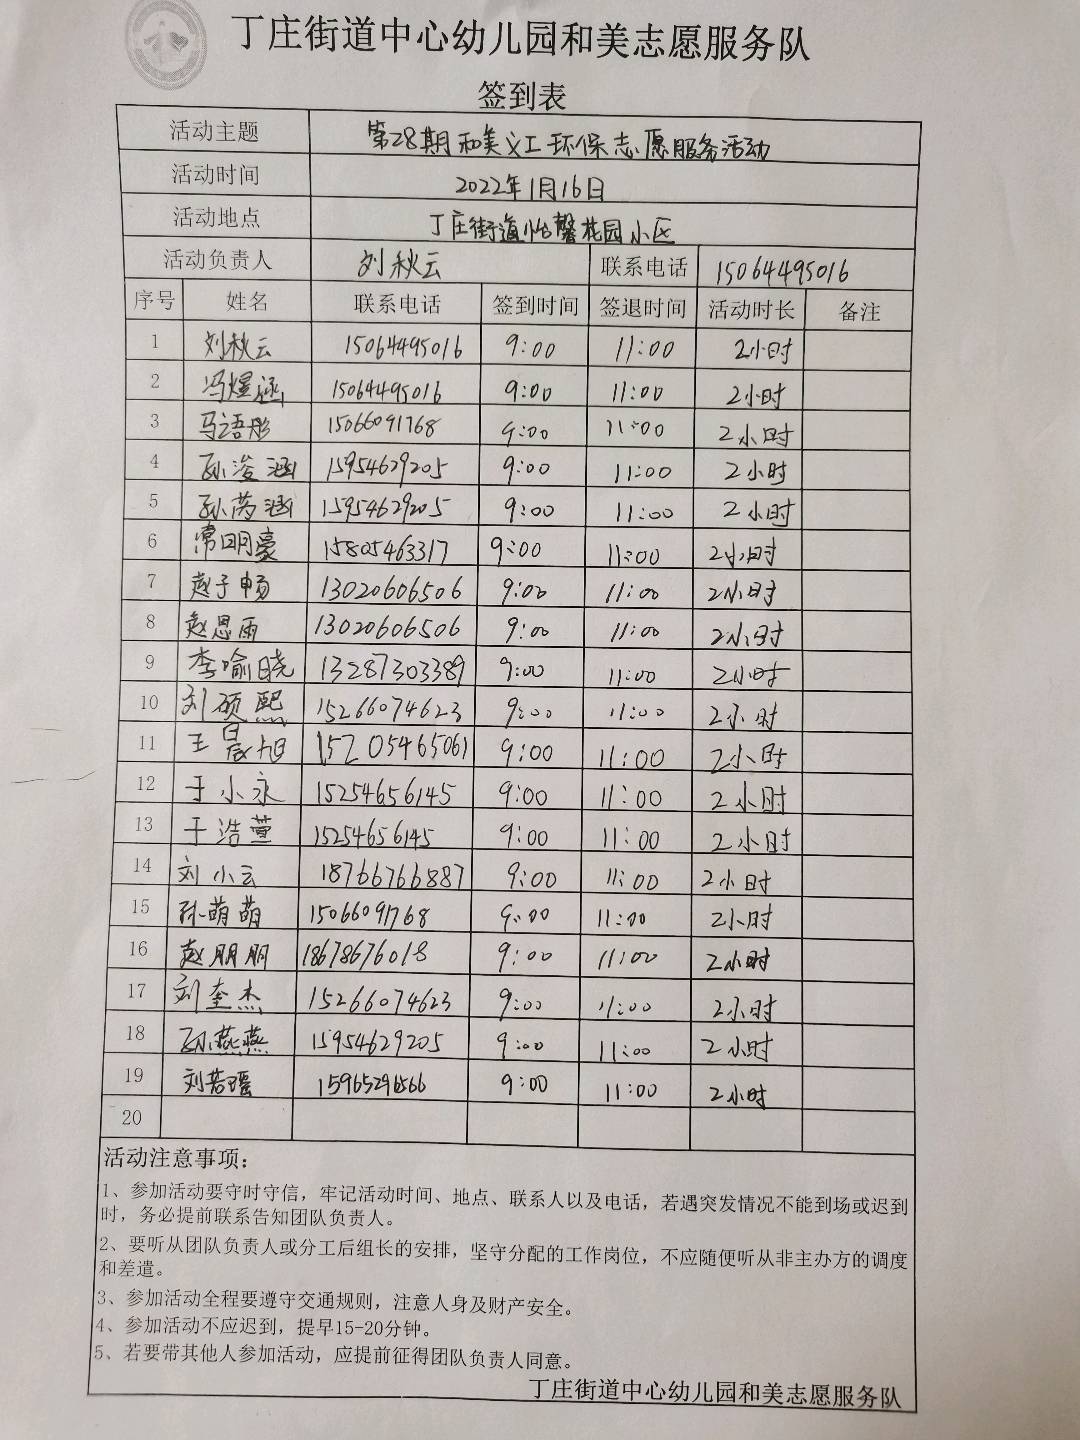 丁庄街道中心幼儿园和美志愿服务队
签到表
活动主题 第28期和美义工环保志愿服务活动
活动时间 2022年1月16日
活动地点 丁庄街道怡馨花园小区
活动负责人 刘秋云 联系电话 15064495016
序号 姓名 联系电话 签到时间 签退时间 活动时长 备注
1 刘秋云 15064495016 9:00 11:00 2小时
2 冯煜涵 15064495016 9:00 11:00 2小时
3 马语彤 15066091768 9:00 11:00 2小时
4 孙浚涵 15954629205 9:00 11:00 2小时
5 孙芮涵 15954629205 9:00 11:00 2小时
6 常明豪 15805463317 9:00 11:00 2小时
7 赵子畅 13020606506 9:00 11:00 2小时
8 赵思雨 13020606506 9:00 11:00 2小时
9 李喻晓 13287303389 9:00 11:00 2小时
10 刘硕熙 15266074623 9:00 11:00 2小时
11 王晨旭 15205465061 9:00 11:00 2小时
12 于小永 15254656145 9:00 11:00 2小时
13 于浩萱 15254656145 9:00 11:00 2小时
14 刘小云 18766766887 9:00 11:00 2小时
15 孙萌萌 15066091768 9:00 11:00 2小时
16 赵朋朋 18678676018 9:00 11:00 2小时
17 刘奎杰 15266074623 9:00 11:00 2小时
18 孙燕燕 15954629205 9:00 11:00 2小时
19 刘若瑶 15965296566 9:00 11:00 2小时
20
活动注意事项：
1、参加活动要守时守信，牢记活动时间、地点、联系人以及电话，若遇突发情况不能到场或迟到
时，务必提前联系告知团队负责人。
2、要听从团队负责人或分工后组长的安排，坚守分配的工作岗位，不应随便听从非主办方的调度
和差遣。
3、参加活动全程要遵守交通规则，注意人身及财产安全。
4、参加活动不应迟到，提早15-20分钟。
5、若要带其他人参加活动，应提前征得团队负责人同意。
丁庄街道中心幼儿园和美志愿服务队